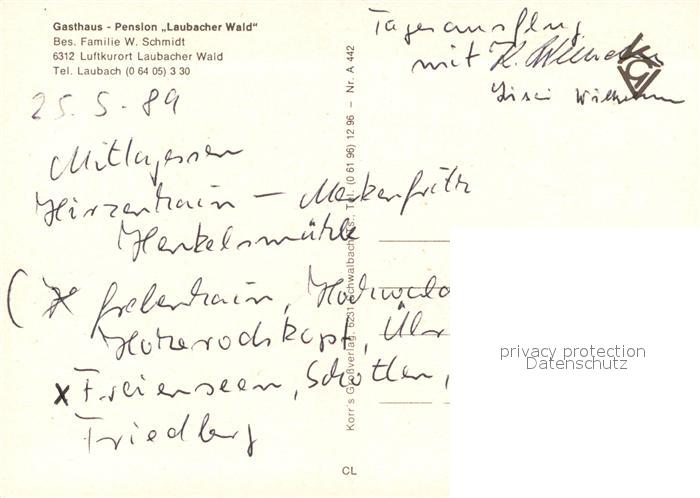 Gasthaus - Pension „Laubacher Wald“
Bes. Familie W. Schmidt
6312 Luftkurort Laubacher Wald
Tel. Laubach (0 64 05) 3 30
Tagesausflug
mit K.
Wilhelm
25. 5. 89
Mittagessen
Hirzenhain — Merkenfritz
Henkelsmühle
( * Grebenhain, Hochwald
Hoherodskopf,
x Freienseen, Schotten,
Friedberg
Korr's Großverlag, 6231 Schwalbach/Ts., Tel. (0 61 96) 12 96 – Nr. A 442
CL
privacy protection
Datenschutz